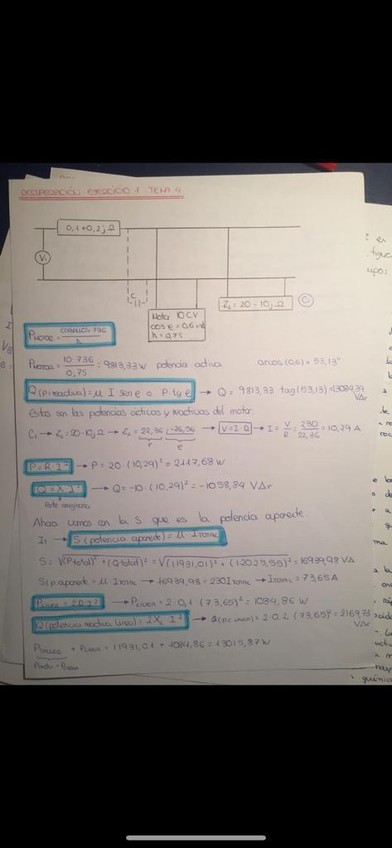 RECUPERACIÓN EJERCICIO 1 TEMA 4
0,1+0,2j Ω
V₁
C
Motor 10 C.V
cos φ = 0,6 ind
h = 0,75
Z₁ = 20 - 10j Ω
C₁
P MOTOR = CABALLOS · 736 / h
P MOTOR = 10 · 736 / 0,75 = 9813,33 W potencia activa arccos(0,6) = 53,13°
Q (P. reactiva) = U · I sen φ o P · tg φ → Q = 9813,33 · tag(53,13) = 13084,39 VAr
Estas son las potencias activas y reactivas del motor.
C₁ → Z₁ = 20 - 10j Ω → Z₁ = 22,36 |-26,56 → V = I · Ω → I = V/R = 230/22,36 = 10,29 A
P = R · I² → P = 20 · (10,29)² = 2117,68 W
Q = X · I² → Q = -10 · (10,29)² = -1058,84 VAr
Parte imaginaria
Ahora vamos con la S que es la potencia aparente.
I₁ → S (potencia aparente) = U · I total
S = √(P total)² + (Q total)² = √(11931,01)² + (12025,55)² = 16939,98 VA
S (p. aparente = U · I total → 16939,98 = 230 I total → I total = 73,65 A
P línea = 2 · R · I² → P línea = 2 · 0,1 (73,65)² = 1084,86 W
Q (potencia reactiva línea) = 2 X · I² → Q (reac. línea) = 2 · 0,2 · (73,65)² = 2169,73 VAr
+ P línea = 11931,01 + 1084,86 = 13015,87 W